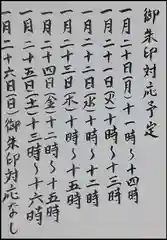 御朱印対応予定
一月二十日(月)十一時〜十四時
一月二十一日(火)十時〜十三時
一月二十二日(水)十時〜十時
一月二十三日(木)十時〜十五時
一月二十四日(金)十二時〜十五時
一月二十五日(土)十三時〜十六時
一月二十六日(日)御朱印対応なし